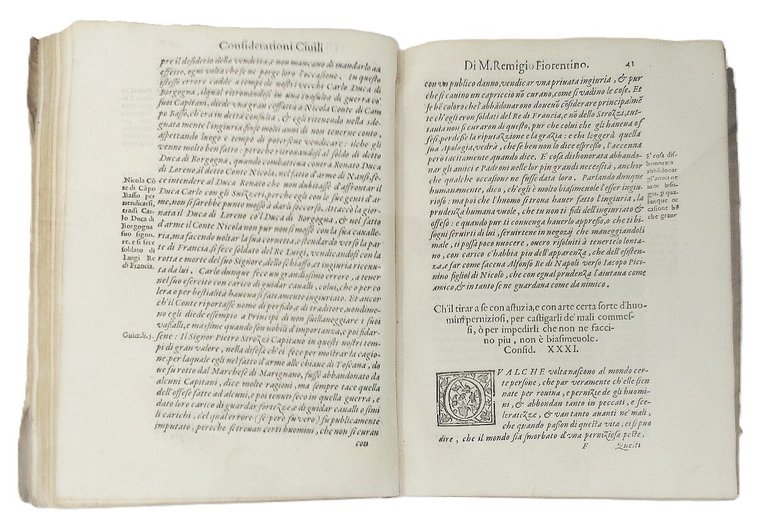 Considerationi Ciuili
pre il desiderio della vendetta, e non mancano di mandarlo ad
effetto, ogni volta che se ne porge loro l'occasione. In questo
stesso errore cadde a tempi de nostri vecchi Carlo Duca di
Borgogna, ilqual ritrouandosi in vna consulta di guerra cō
suoi Capitani, diede vna gran ceffata a Nicola Conte di Cam
po Basso, ch'era in detta consulta, & egli ritenendo nella sde-
gnata mente l'ingiuria, finse molti anni di non tenerne conto,
aspettando luogo e tempo di potersene vendicare: ilche gli
venne molto ben fatto: peroche ritrouandosi al soldo di detto
Duca di Borgogna, quando combatteua contra Renato Duca
di Loreno, il detto Conte Nicola, nel fatto d'arme di Nansi, fe-
ce intendere al Duca Renato che non dubitasse d'affrontar il
Duca Carlo con gli Suizzeri, perche egli con le sue genti d'ar
me, non si sarebbe punto mosso a darli soccorso. Attacco la gior
nata il Duca di Loreno cō'l Duca di Borgogna, & al menar del
l'arme il Conte Nicola non pur non si mosse con la sua cauall
eria, ma facendo voltar la sua cornetta, e stendardo verso la par
te di Francia, si fece soldato del Re Luigi, vendicandosi con
rotta e morte del suo Signore, dello schiaffo, et ingiuria riceuu
ta da lui. Carlo dunque fece vn grandissimo errore, a tener
nel suo esercito con carico di guidar caualli, colui, che o per co
lera o per bestialità haueua si fattamente ingiuriato. Et ancor
che'l Conte riportasse nome di perfido, e di traditore, nondime
no egli diede esempio a Principi di non sullaneggiare i suoi
vasalli, e ma ssime quando son nobili d'importanza, e poi fidar-
sene: Il Signor Pietro Strozzi Capitano in questi nostri tem
pi di gran valore, nella difesa ch'ei fece per mostrar la cagio
ne per laquale egli nel fatto d'arme alle chiane di Toscana, do
ue fu rotto dal Marchese di Marignano, fusse abbandonato da
alcuni Capitani, dice molte ragioni, ma sempre tace quella
dell'offese fatte ad alcuni, e poi tenuti seco in quella guerra, e
dato loro carico di guardar fortezze, o guidar caualli o simi
li carichi, del qual errore (se però fu vero) fu publicamente
imputato, peroche se trouan certi huomini, che non si curan
con
Nicola Cō
te di Cāpo
Basso per
vendicarsi,
tradì Car-
lo Duca di
Borgogna
suo signo-
re, e si fece
soldato di
Luigi Re
di Francia.
Guicc. li. 5.
Di M. Remigio Fiorentino. 41
con vn publico danno, vendicar vna priuata ingiuria, & pur
che si cauino vn capriccio nō curano, come si vadino le cose. Et
se bē coloro, che l'abbādonarono doueuā cōsiderare principalmē
te ch'egli eron soldati del Re di Francia, e nō dello Strozzi, tut-
tauia non si curaron di questo, pur che colui che gli haueua of
fesi, perdesse la riputatione e la grazia: e chi leggerà quella
sua Apologia, vedrà, che se ben non lo dice espresso, l'accenna
però tacitamente quando dice. E' cosa dishonorata abbando-
nar gli amici e Padroni nelle lor più grandi necessità, anchor
che qualche occasione ne fusse data loro. Parlando dunque
humanamente, dico, ch'egli è molto biasimeuole l'esser ingiu-
riato, ma poi che l'huomo si troua hauer fatto l'ingiuria, la
prudenza humana vuole, che tu non ti fidi dell'ingiuriato &
offeso: e quando pur ti conuenga hauerlo appresso, e che ti bi-
sogni seruirti di lui, seruirtene in negozij, che maneggiandoli
male, ti possa poco nuocere, ouero risoluiti à tenertelo lonta-
no, con carico c'habbia più dell'apparenza, che dell'esisten-
za, e far come faceua Alfonso Re di Napoli verso Iacopo Pic-
cinino figliuolo di Nicolo, che con egual prudenza l'aiutaua come
amico, & in tanto se ne guardaua come da nimico.
E' cosa dis-
honorata
Ch'il tirar a se con astuzia, e con arte certa sorte d'huo-
mini perniziosi, per castigarli de' mali commes-
si, ò per impedirli che non ne facci-
no piu, non è biasmeuole.
Consid. XXXI.
QVALCHE volta nascono al mondo cer-
te persone, che par veramente che elle sien
nate per rouina, e pernizie de gli huomi
ni, & abbondan tanto in peccati, e scele-
ratezze, & van tanto auanti ne' mali,
che quando passon di questa vita, ei si puo
dire, che il mondo sia smorbato d'vna perniziosa peste.
F Questi